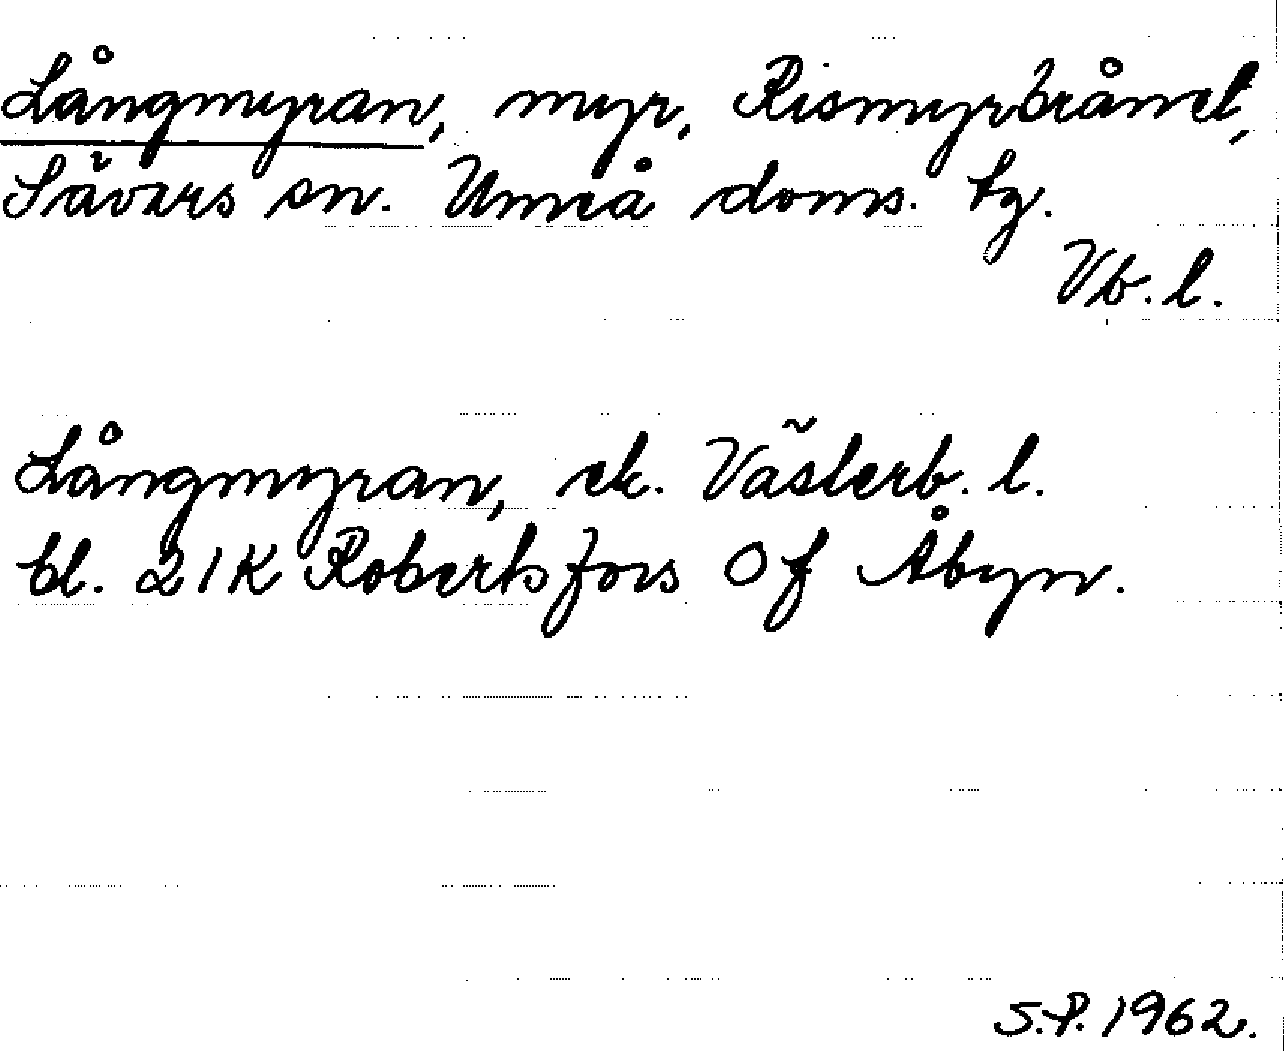 Långmyran, myr, Rismyrbrånet,
Sävars sn. Umeå doms. tg.
Vb. l.
Långmyran, ek. Västerb. l.
bl. 21K Robertsfors 0f Åbyn.
S.P. 1962.